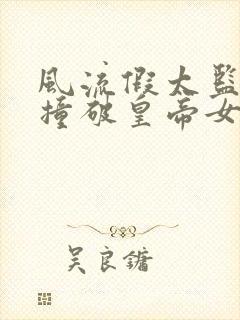 風流假太監
撞破皇帝女
吴良鏞